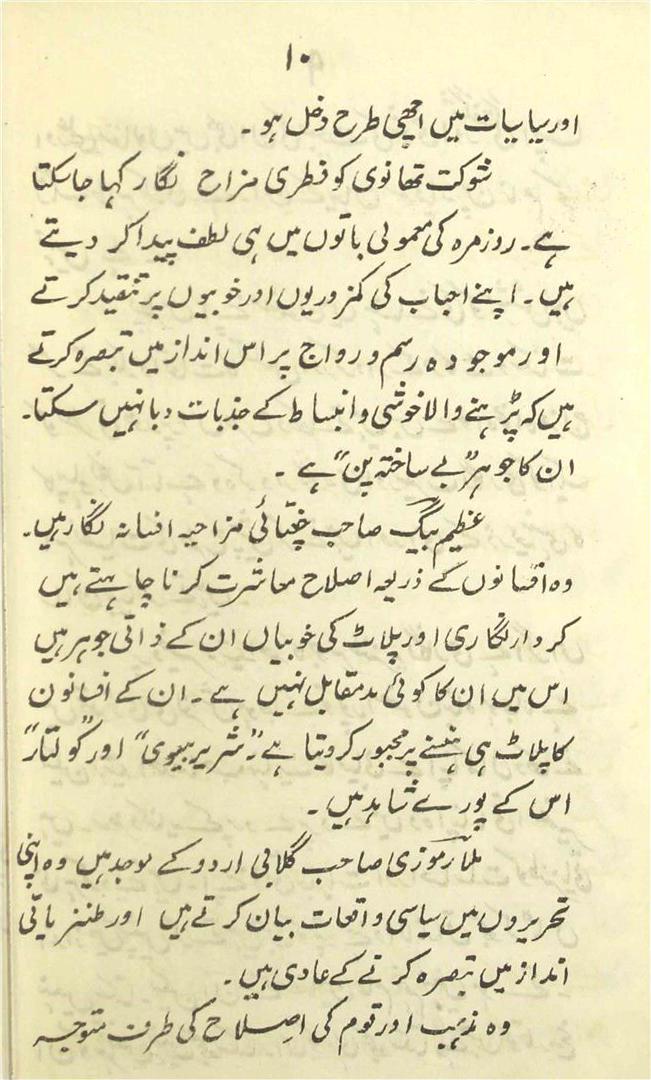 ۱۰
اور سیاسیات میں اچھی طرح دخل ہو۔
شوکت تھانوی کو فطری مزاح نگار کہا جا سکتا
ہے۔ روزمرہ کی معمولی باتوں میں ہی لطف پیدا کر دیتے
ہیں۔ اپنے احباب کی کمزوریوں اور خوبیوں پر تنقید کرتے
اور موجودہ رسم و رواج پر اس انداز میں تبصرہ کرتے
ہیں کہ پڑہنے والا خوشی و انبساط کے جذبات دبا نہیں سکتا۔
ان کا جوہر "بے ساختہ پن" ہے ۔
عظیم بیگ صاحب چغتائی مزاحیہ افسانہ نگار ہیں۔
وہ افسانوں کے ذریعہ اصلاح معاشرت کرنا چاہتے ہیں
کردار نگاری اور پلاٹ کی خوبیاں ان کے ذاتی جوہر ہیں
اس میں ان کا کوئی مد مقابل نہیں ہے ۔ ان کے افسانون
کا پلاٹ ہی ہنسنے پر مجبور کر دیتا ہے۔ "شریر بیوی" اور "کولتار"
اس کے پورے شاہد ہیں ۔
ملا رموزی صاحب گلابی اردو کے موجد ہیں وہ اپنی
تحریروں میں سیاسی واقعات بیان کرتے ہیں اور طنزیاتی
انداز میں تبصرہ کرتے کے عادی ہیں۔
وہ مذہب اور قوم کی اِصلاح کی طرف متوجہ